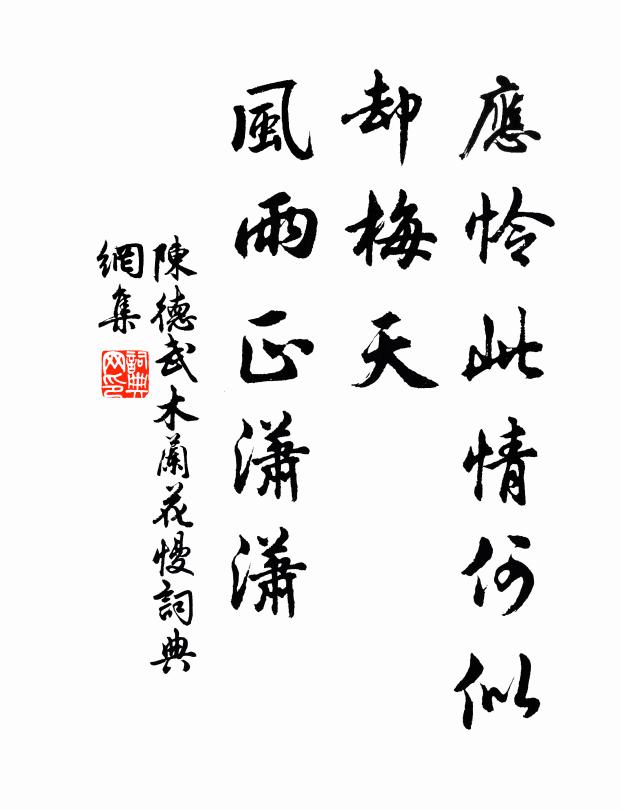 應怜此情何似
却梅天
風雨正瀟瀟
陳德武木蘭花慢詞典
網集
詞典
网印